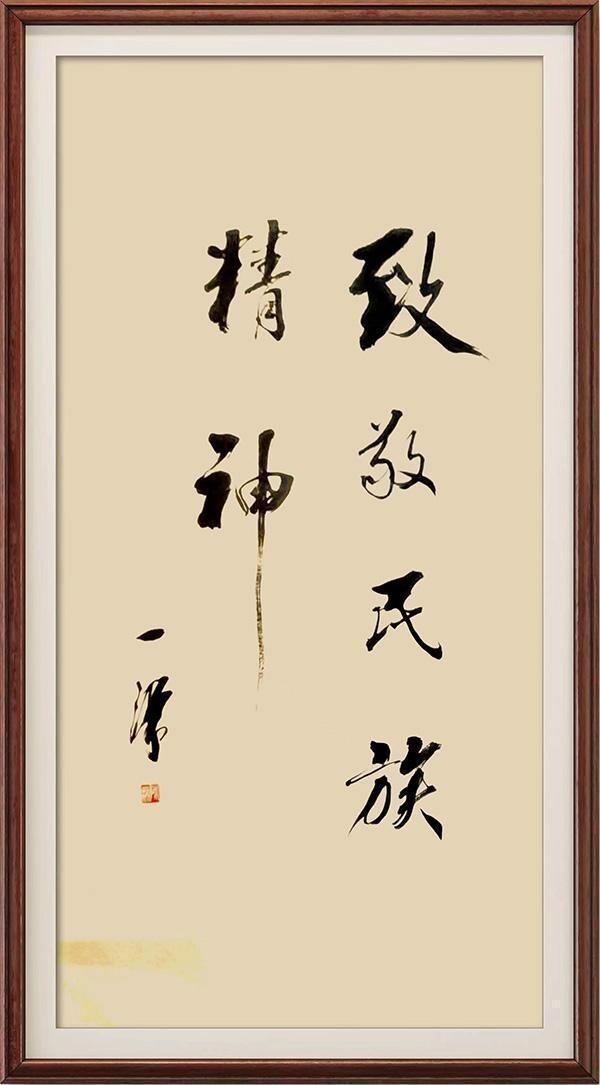 致敬民族
精神
一